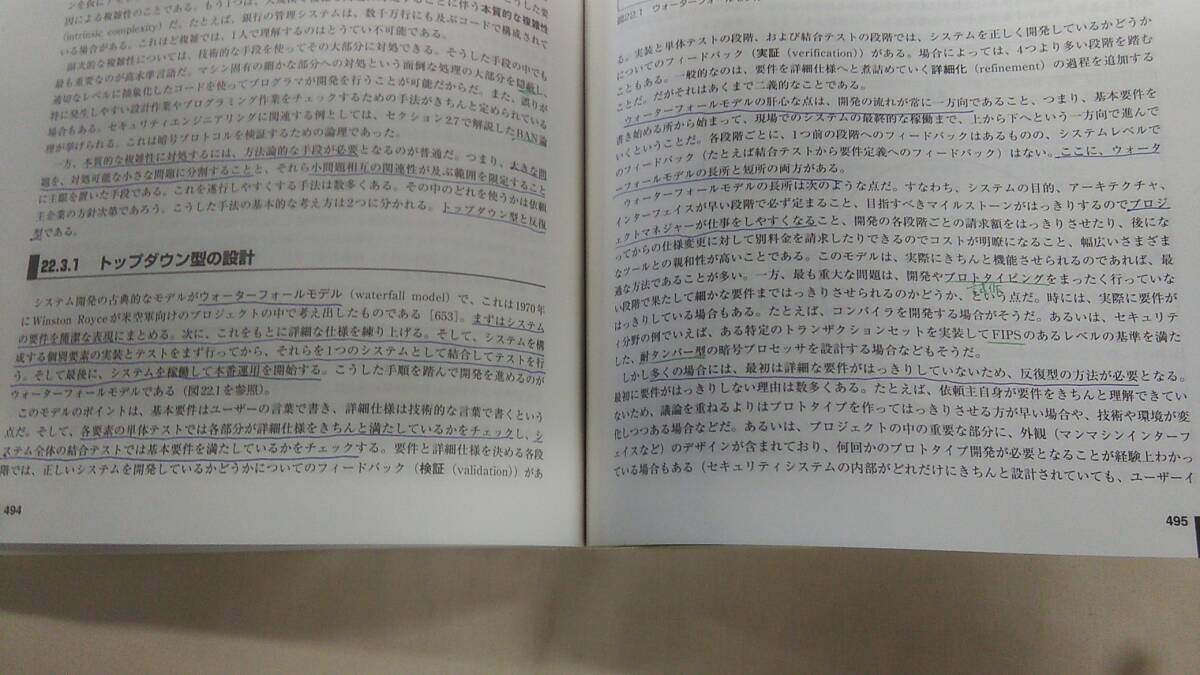 因による複雑性のことである。もう1つは、
(intrinsic complexity) だ。たとえば、銀行の管理システムは、数千万行にも及ぶコードで構成されて
いる場合がある。これほど複雑では、1人で理解するのはとうてい不可能である。
副次的な複雑性については、技術的な手段を使ってその大部分に対処できる。そうした手段の中でも
最も重要なのが高水準言語だ。マシン固有の細かな部分への対処という面倒な処理の大部分を隠蔽し、
適切なレベルに抽象化したコードを使ってプログラマが開発を行うことが可能だからだ。また、誤りが
特に発生しやすい設計作業やプログラミング作業をチェックするための手法がきちんと定められている
場合もある。セキュリティエンジニアリングに関連する例としては、セクション2.7で解説したBAN論
理が挙げられる。これは暗号プロトコルを検証するための論理であった。
一方、本質的な複雑性に対処するには、方法論的な手段が必要となるのが普通だ。つまり、大きな問
題を、対処可能な小さな問題に分割することと、それら小問題相互の関連性が及ぶ範囲を限定すること
に主眼を置いた手段である。これを遂行しやすくする手法は数多くある。その中のどれを使うかは依頼
主企業の方針次第であろう。こうした手法の基本的な考え方は2つに分かれる。トップダウン型と反復
型である。
22.3.1 トップダウン型の設計
システム開発の古典的なモデルがウォーターフォールモデル (waterfall model) で、これは1970年
にWinston Royceが米空軍向けのプロジェクトの中で考え出したものである [653]。まずはシステム
の要件を簡潔な表現にまとめる。次に、これをもとに詳細な仕様を練り上げる。そして、システムを構
成する個別要素の実装とテストをまず行ってから、それらを1つのシステムとして結合してテストを行
う。そして最後に、システムを稼働して本番運用を開始する。こうした手順を踏んで開発を進めるのが
ウォーターフォールモデルである (図22.1を参照)。
このモデルのポイントは、基本要件はユーザーの言葉で書き、詳細仕様は技術的な言葉で書くという
点だ。そして、各要素の単体テストでは各部分が詳細仕様をきちんと満たしているかをチェックし、シ
ステム全体の結合テストでは基本要件を満たしているかをチェックする。要件と詳細仕様を決める各段
階では、正しいシステムを開発しているかどうかについてのフィードバック (検証 (validation)) があ
494
図22.1 ウォーターフォールモデル
る。実装と単体テストの段階、および結合テストの段階では、システムを正しく開発しているかどうか
についてのフィードバック (実証 (verification)) がある。場合によっては、4つより多い段階を踏む
こともある。一般的なのは、要件を詳細仕様へと煮詰めていく詳細化 (refinement) の過程を追加する
ことだ。だがそれはあくまで二義的なことである。
ウォーターフォールモデルの肝心な点は、開発の流れが常に一方向であること、つまり、基本要件を
書き始める所から始まって、現場でのシステムの最終的な稼働まで、上から下へという一方向で進んで
いくということだ。各段階ごとに、1つ前の段階へのフィードバックはあるものの、システムレベルで
のフィードバック (たとえば結合テストから要件定義へのフィードバック) はない。ここに、ウォータ
ーフォールモデルの長所と短所の両方がある。
ウォーターフォールモデルの長所は次のような点だ。すなわち、システムの目的、アーキテクチャ、
インターフェイスが早い段階で必ず定まること、目指すべきマイルストーンがはっきりするのでプロジ
ェクトマネジャーが仕事をしやすくなること、開発の各段階ごとの請求額をはっきりさせたり、後にな
ってからの仕様変更に対して別料金を請求したりできるのでコストが明瞭になること、幅広いさまざま
なツールとの親和性が高いことである。このモデルは、実際にきちんと機能させられるのであれば、最
適な方法であることが多い。一方、最も重大な問題は、開発やプロトタイピングをまったく行っていな
試作
い段階で果たして細かな要件まではっきりさせられるのかどうか、という点だ。時には、実際に要件が
はっきりしている場合もある。たとえば、コンパイラを開発する場合がそうだ。あるいは、セキュリテ
ィ分野の例でいえば、ある特定のトランザクションセットを実装してFIPSのあるレベルの基準を満た
した、耐タンパー型の暗号プロセッサを設計する場合などもそうだ。
しかし多くの場合には、最初は詳細な要件がはっきりしていないため、反復型の方法が必要となる。
最初に要件がはっきりしない理由は数多くある。たとえば、依頼主自身が要件をきちんと理解できてい
ないため、議論を重ねるよりはプロトタイプを作ってはっきりさせる方が早い場合や、技術や環境が変
化しつつある場合などだ。あるいは、プロジェクトの中の重要な部分に、外観 (マンマシンインターフ
ェイスなど) のデザインが含まれており、何回かのプロトタイプ開発が必要となることが経験上わかっ
ている場合もある (セキュリティシステムの内部がどれだけにきちんと設計されていても、ユーザーイ
495